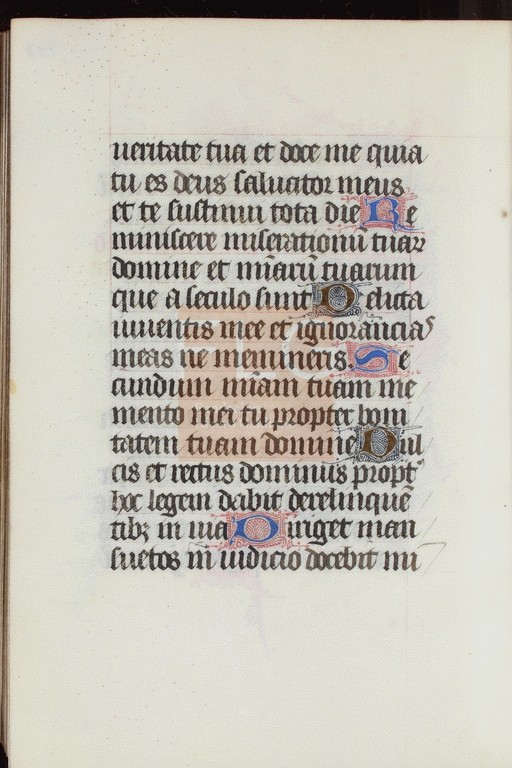 ueritate tua et doce me quia
tu es deus saluator meus
et te sustinui tota die Re
miniscere miserationū tuaꝝ
domine et miarū tuarum
que a seculo sunt Delicta
iuuentis mee et ignorancias
meas ne memineris. Se
cundum miam tuam me
mento mei tu propter boni
tatem tuam domine Dul
cis et rectus dominus propt᾿
hoc legem dabit derelinquē
tibꝫ in uia Diriget man
suetos in iudicio docebit mi